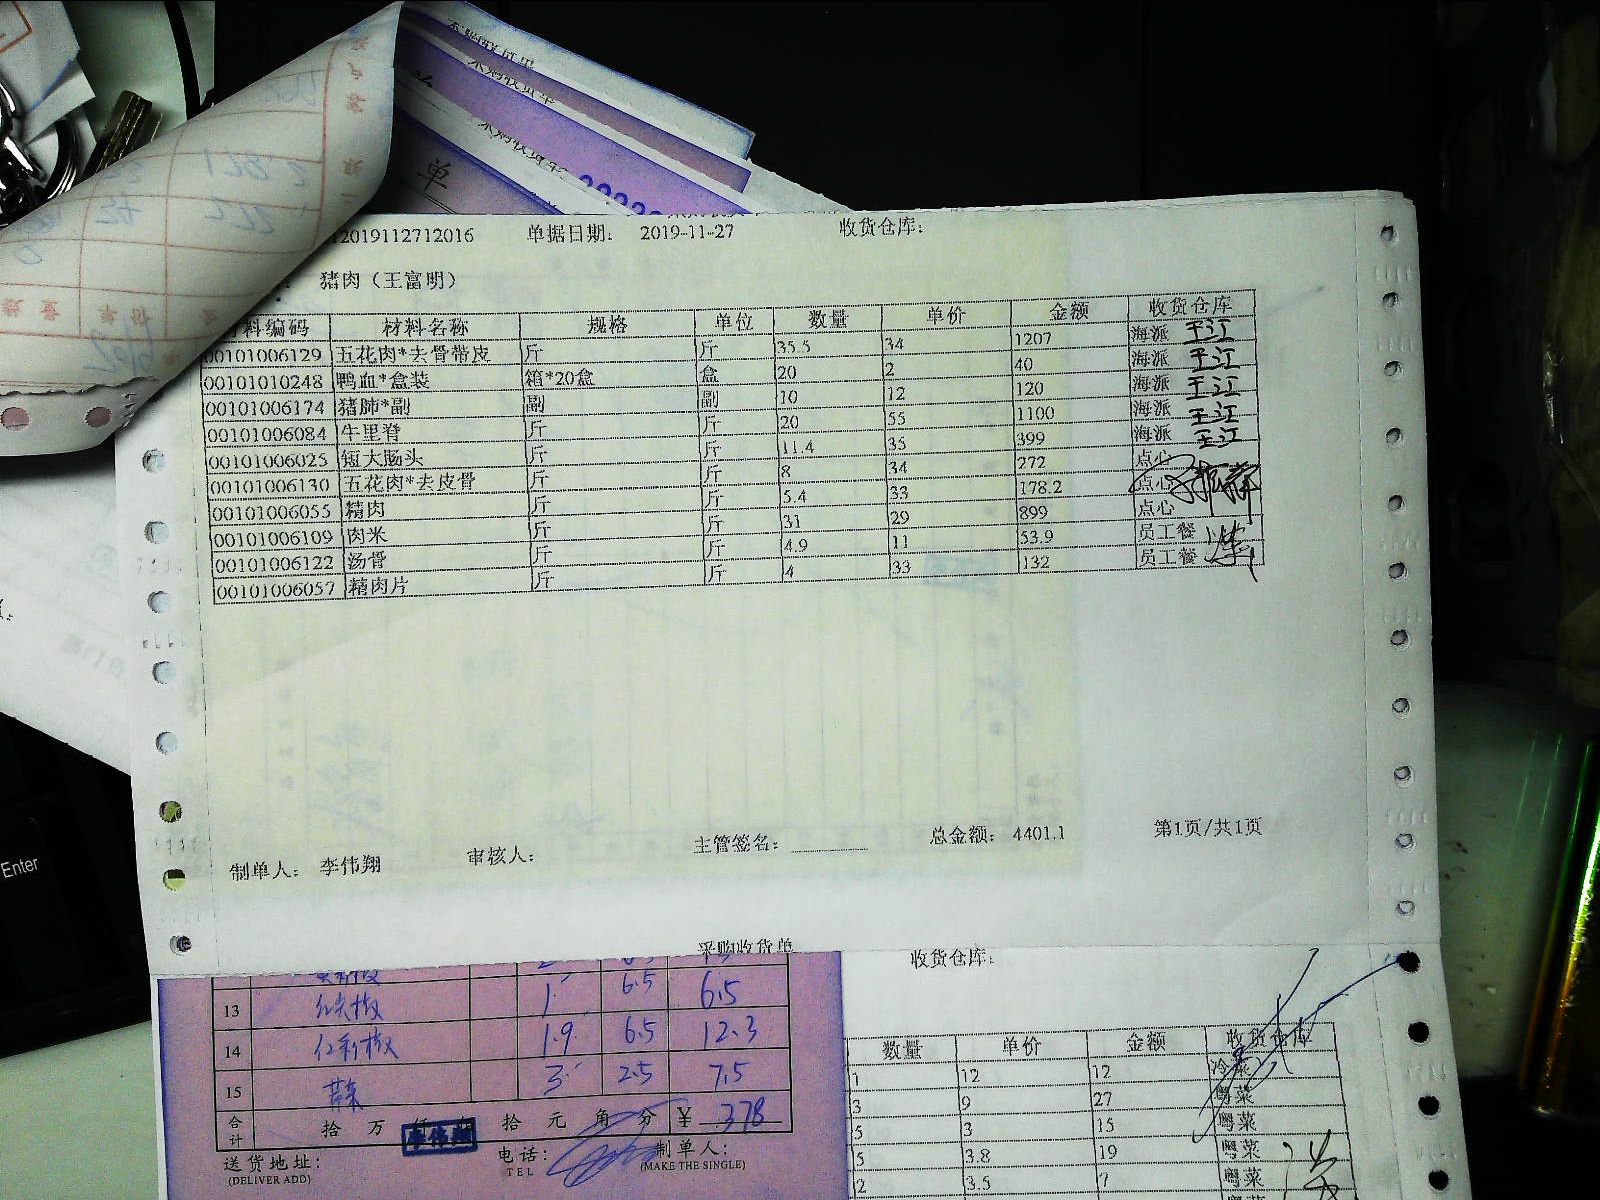 采购收货单
单
2019112712016 单据日期: 2019-11-27 收货仓库:
猪肉（王富明）
料编码 材料名称 规格 单位 数量 单价 金额 收货仓库
00101006129 五花肉*去骨带皮 斤 斤 35.5 34 1207 海派 王江
00101010248 鸭血*盒装 箱*20盒 盒 20 2 40 海派 王江
00101006174 猪肺*副 副 副 10 12 120 海派 王江
00101006084 牛里脊 斤 斤 20 55 1100 海派 王江
00101006025 短大肠头 斤 斤 11.4 35 399 海派 王江
00101006130 五花肉*去皮骨 斤 斤 8 34 272 点心
00101006055 精肉 斤 斤 5.4 33 178.2 点心
00101006109 肉米 斤 斤 31 29 899 点心
00101006122 汤骨 斤 斤 4.9 11 53.9 员工餐
00101006057 精肉片 斤 斤 4 33 132 员工餐
制单人: 李伟翔 审核人: 主管签名: 总金额: 4401.1 第1页/共1页
Enter
采购收货单
收货仓库:
13 红尖椒 1 6.5 6.5
14 红彩椒 1.9 6.5 12.3
15 3 2.5 7.5
合计 拾 万 仟 拾 元 角 分 ¥ 378
李伟翔
送货地址: 电话: 制单人:
(DELIVER ADD) TEL (MAKE THE SINGLE)
数量 单价 金额 收货仓库
1 12 12 冷菜
3 9 27 粤菜
5 3 15 粤菜
5 3.8 19 粤菜
2 3.5 7 粤菜